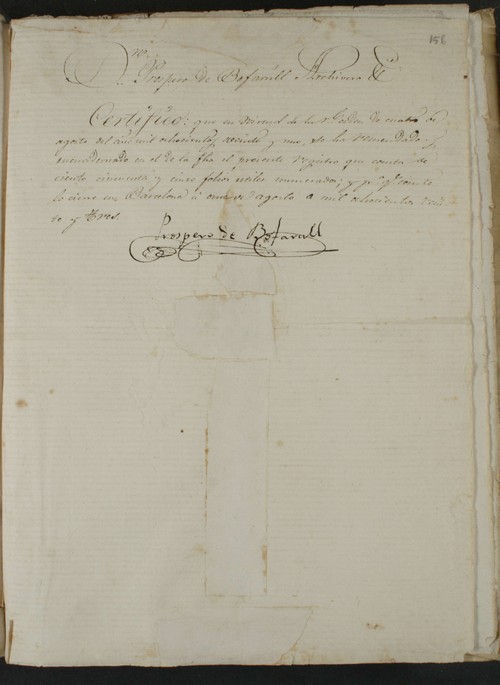 156
Dn. Prospero de Bofarull Archivero &c
Certifico: que en virtud de la Rl. orden de cuatro de
agosto del año mil ochocientos veinte y uno, se ha remendado y
encuadernado en el de la fha el presente registro que consta de
ciento cincuenta y cinco folios utiles numerados; y pa. qe. conste
lo firmo en Barcelona á once de agosto de mil ochocientos vein-
te y tres.
Prospero de Bofarull